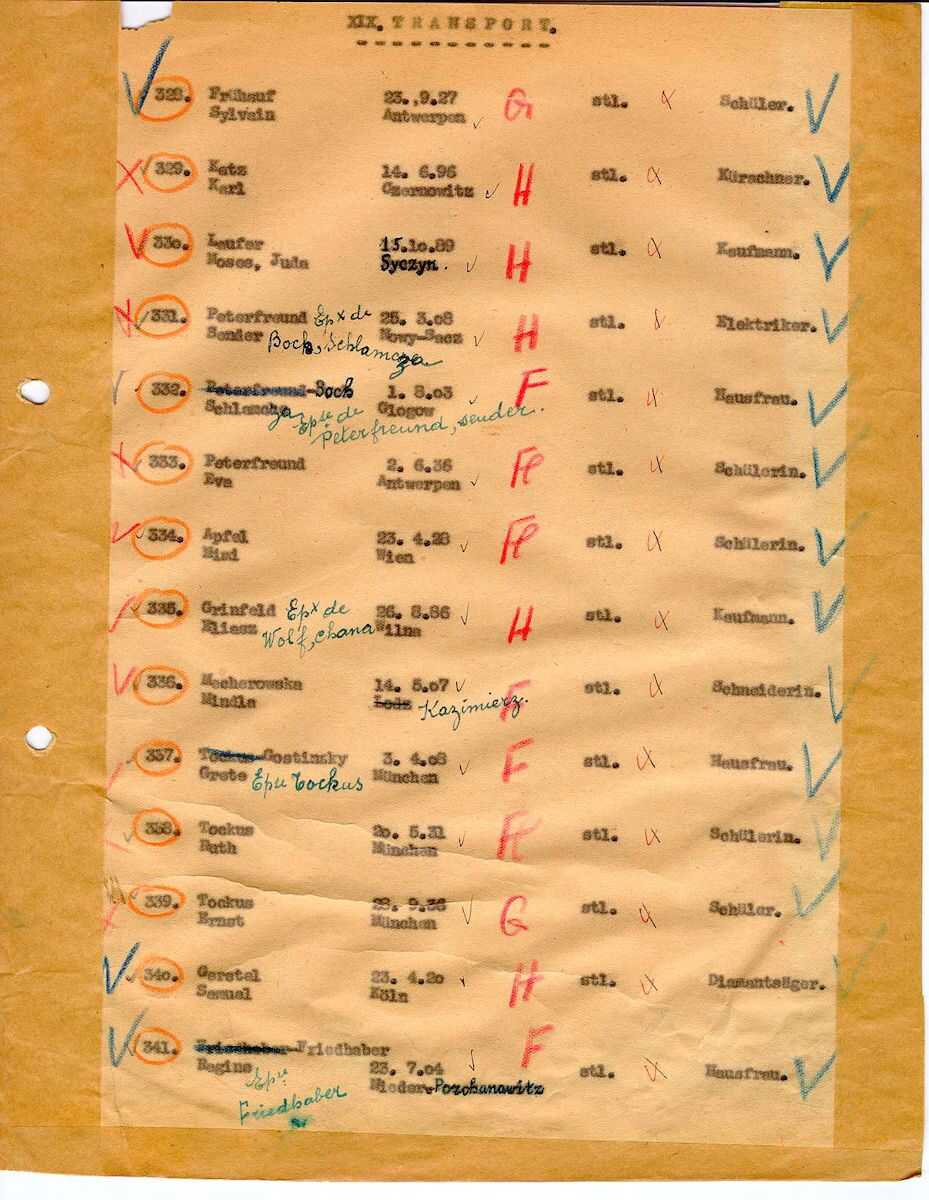 XIX. TRANSPORT.
328. Frühauf 23.,9.27 G stl. Schüler.
Sylvain Antwerpen
329. Katz 14. 6.96 H stl. Kürschner.
Karl Czernowitz
330. Laufer 15.10.89 H stl. Kaufmann.
Moses, Juda Syczyn.
331. Peterfreund Epx de 25. 3.08 H stl. Elektriker.
Sender Bock, Schlamcza Nowy-Sacz
332. Peterfreund-Bock 1. 8.03 F stl. Hausfrau.
Schlamcza Glogow
za Epse de Peterfreund, Sender.
333. Peterfreund 2. 6.36 Fe stl. Schülerin.
Eva Antwerpen
334. Apfel 23. 4.28 Fe stl. Schülerin.
Mimi Wien
335. Grinfeld Epx de 26. 8.86 H stl. Kaufmann.
Eliasz Wolf, Chana Wilna
336. Mecherowska 14. 5.07 F stl. Schneiderin.
Mindla Lodz Kazimierz.
337. Tockus-Gostinsky 3. 4.08 F stl. Hausfrau.
Grete Epse Tockus München
338. Tockus 20. 5.31 Fe stl. Schülerin.
Ruth München
339. Tockus 28. 9.36 G stl. Schüler.
Ernst München
340. Gerstel 23. 4.20 H stl. Diamantsäger.
Samuel Köln
341. Friedhaber F
Regine 23. 7.04 stl. Hausfrau.
Epse Nieder-Pozohanawitz
Friedhaber